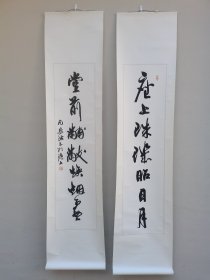 座上珠璣昭日月
堂前黼黻焕烟霞